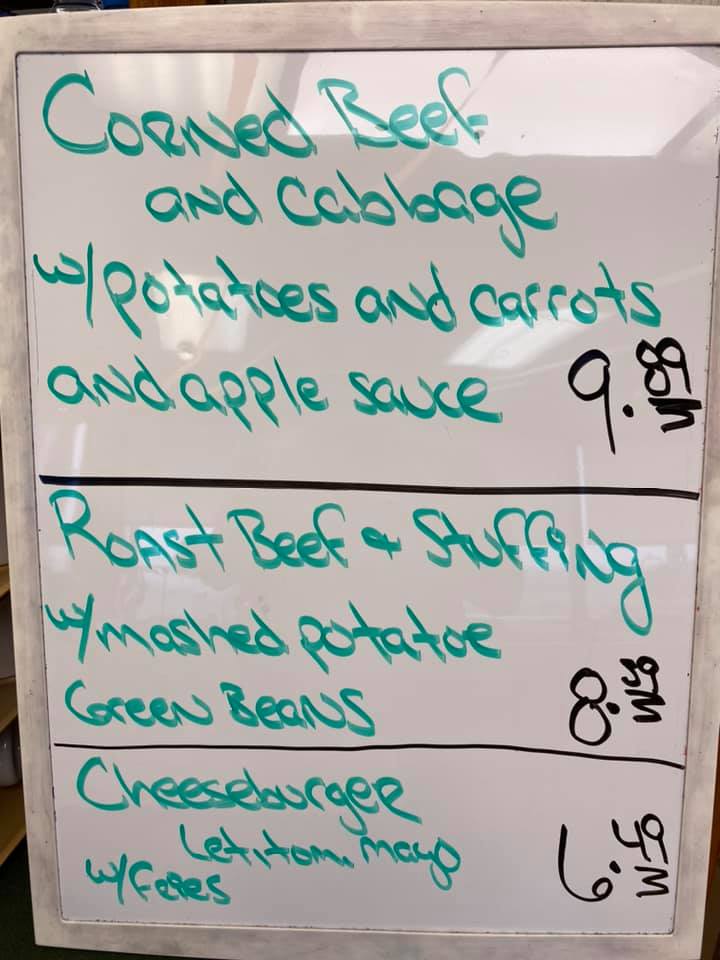 Corned Beef
and Cabbage
w/potatoes and carrots
and apple sauce 9.
Roast Beef & Stuffing
w/mashed potatoe
Green Beans 8.
Cheeseburger
Let, tom. mayo 6.
w/Fries